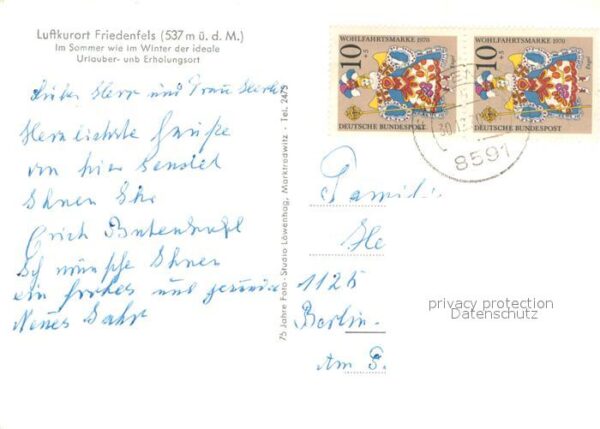 Luftkurort Friedenfels (537 m ü. d. M.)
Im Sommer wie im Winter der ideale
Urlauber- und Erholungsort
Herr und Frau
Herzlichste Grüße
von hier sendet
Ihnen Ihr
Erich
Ich wünsche Ihnen
ein frohes und
Neues Jahr
75 Jahre Foto-Studio Löwenhag, Marktredwitz - Tel. 2475
10
+5
WOHLFAHRTSMARKE 1970
DEUTSCHE BUNDESPOST
10
+5
WOHLFAHRTSMARKE 1970
DEUTSCHE BUNDESPOST
8591
Famili
He
Berlin-
Am
privacy protection
Datenschutz